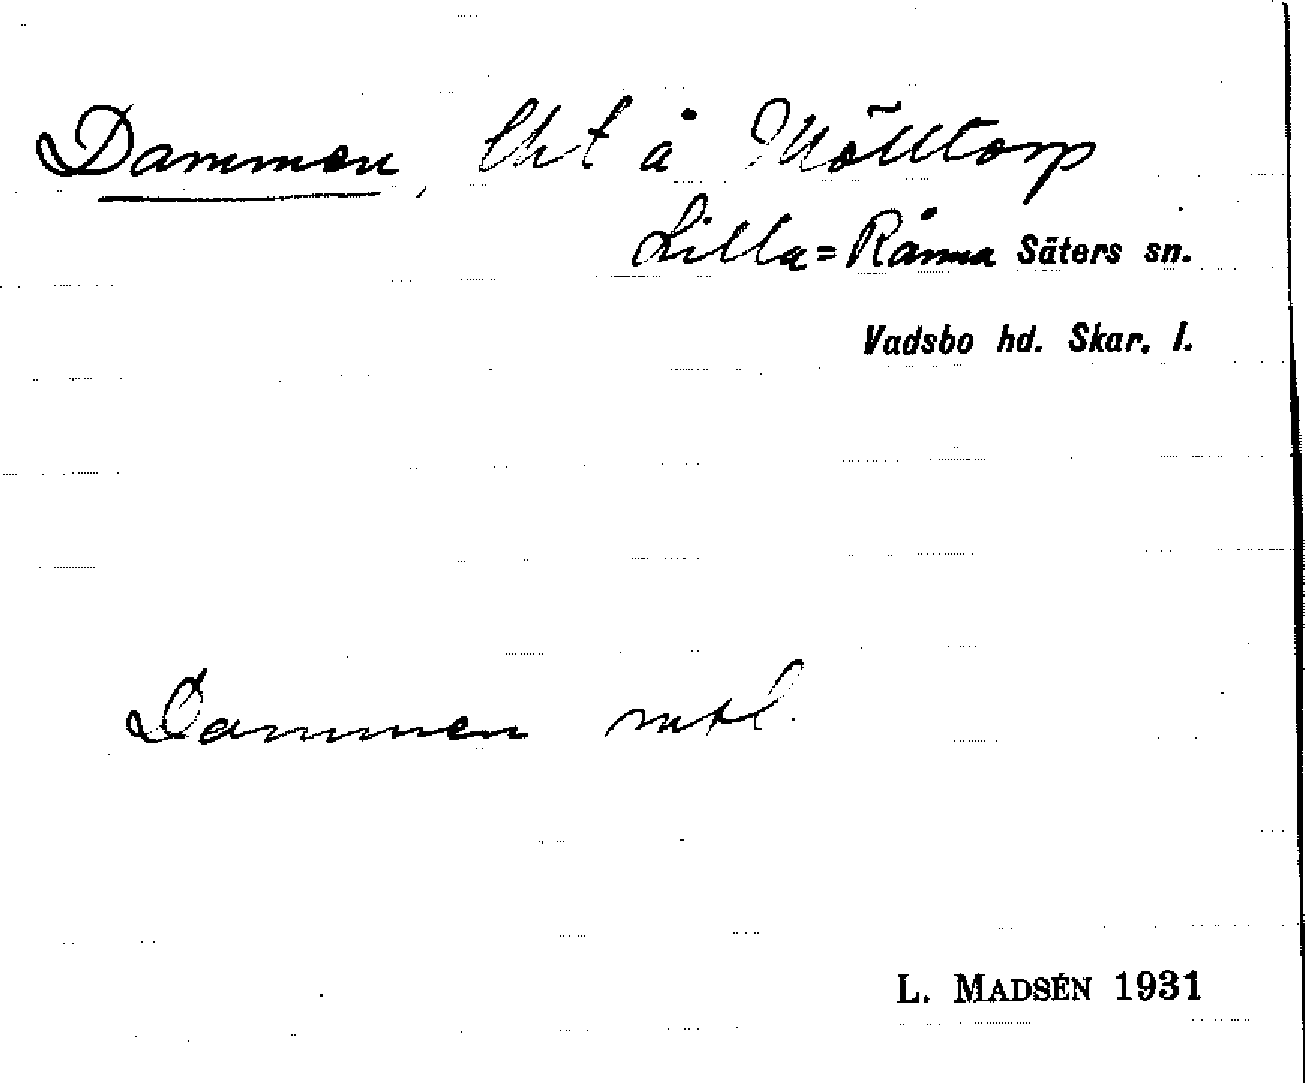 Dammen, lht å Mölltorp
Lilla=Rånna Säters sn.
Vadsbo hd. Skar. l.
Dammen mtl.
L. MADSÉN 1931